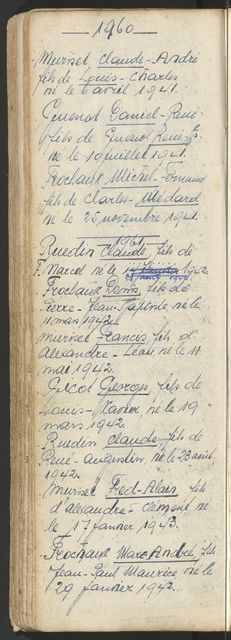 — 1960 —
Muriset Claude-André
fils de Louis-Charles
né le 6 avril 1941.
Guenot Daniel-René
fils de Guenot René
né le 10 juillet 1941.
Frochaux Michel-
fils de Charles-Médard
né le 25 novembre 1941.
1961
Ruedin Claude, fils de
F. Marcel né le 1942.
Frochaux Denis, fils de
Pierre-Jean-Baptiste, né le
11 mars 1942.
Muriset Francis fils d'
Alexandre-Léon né le 11
mai 1942.
Gicot Georges, fils de
Louis-Xavier, né le 19
mars 1942.
Ruedin Claude fils de
René-Augustin, né le 23 août
1942.
Muriset Fred-Alain fils
d'Alexandre-Clément, né
le 17 janvier 1943.
Frochaux Marc André, fils
Jean-Paul Maurice, né le
29 janvier 1942.